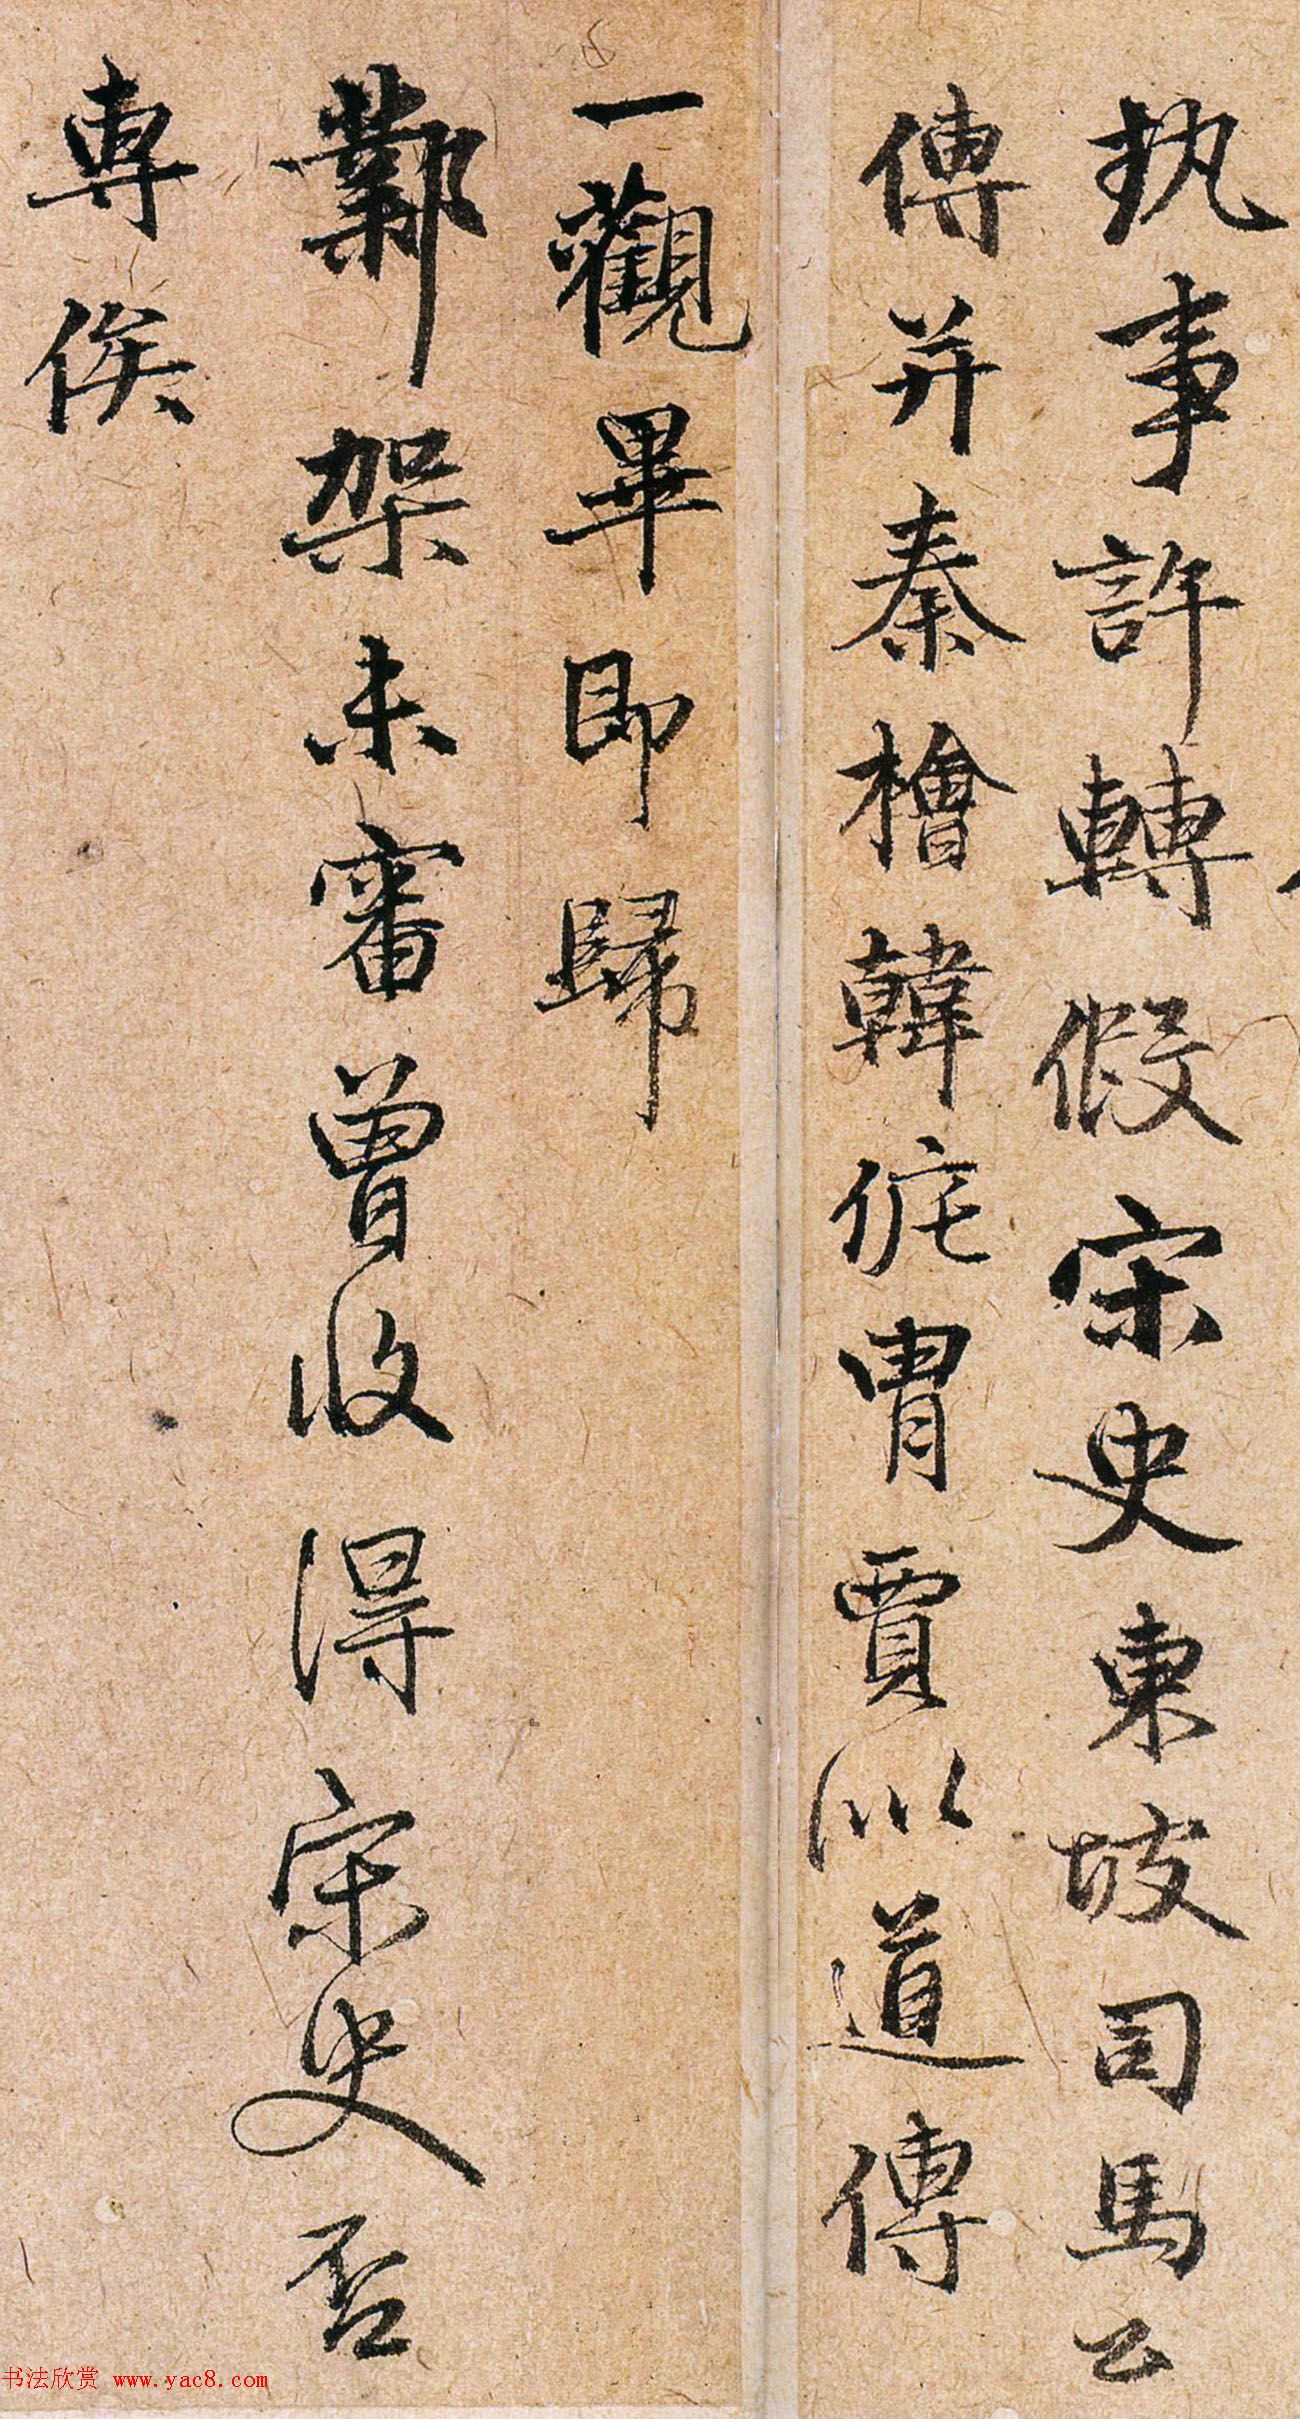 执事許轉假宋史東坡司馬公
傳并秦檜韓侂胄賈似道傳
一觀畢即歸
鄴架未審曾收得宋史否
專俟
书法欣赏 www.yac8.com